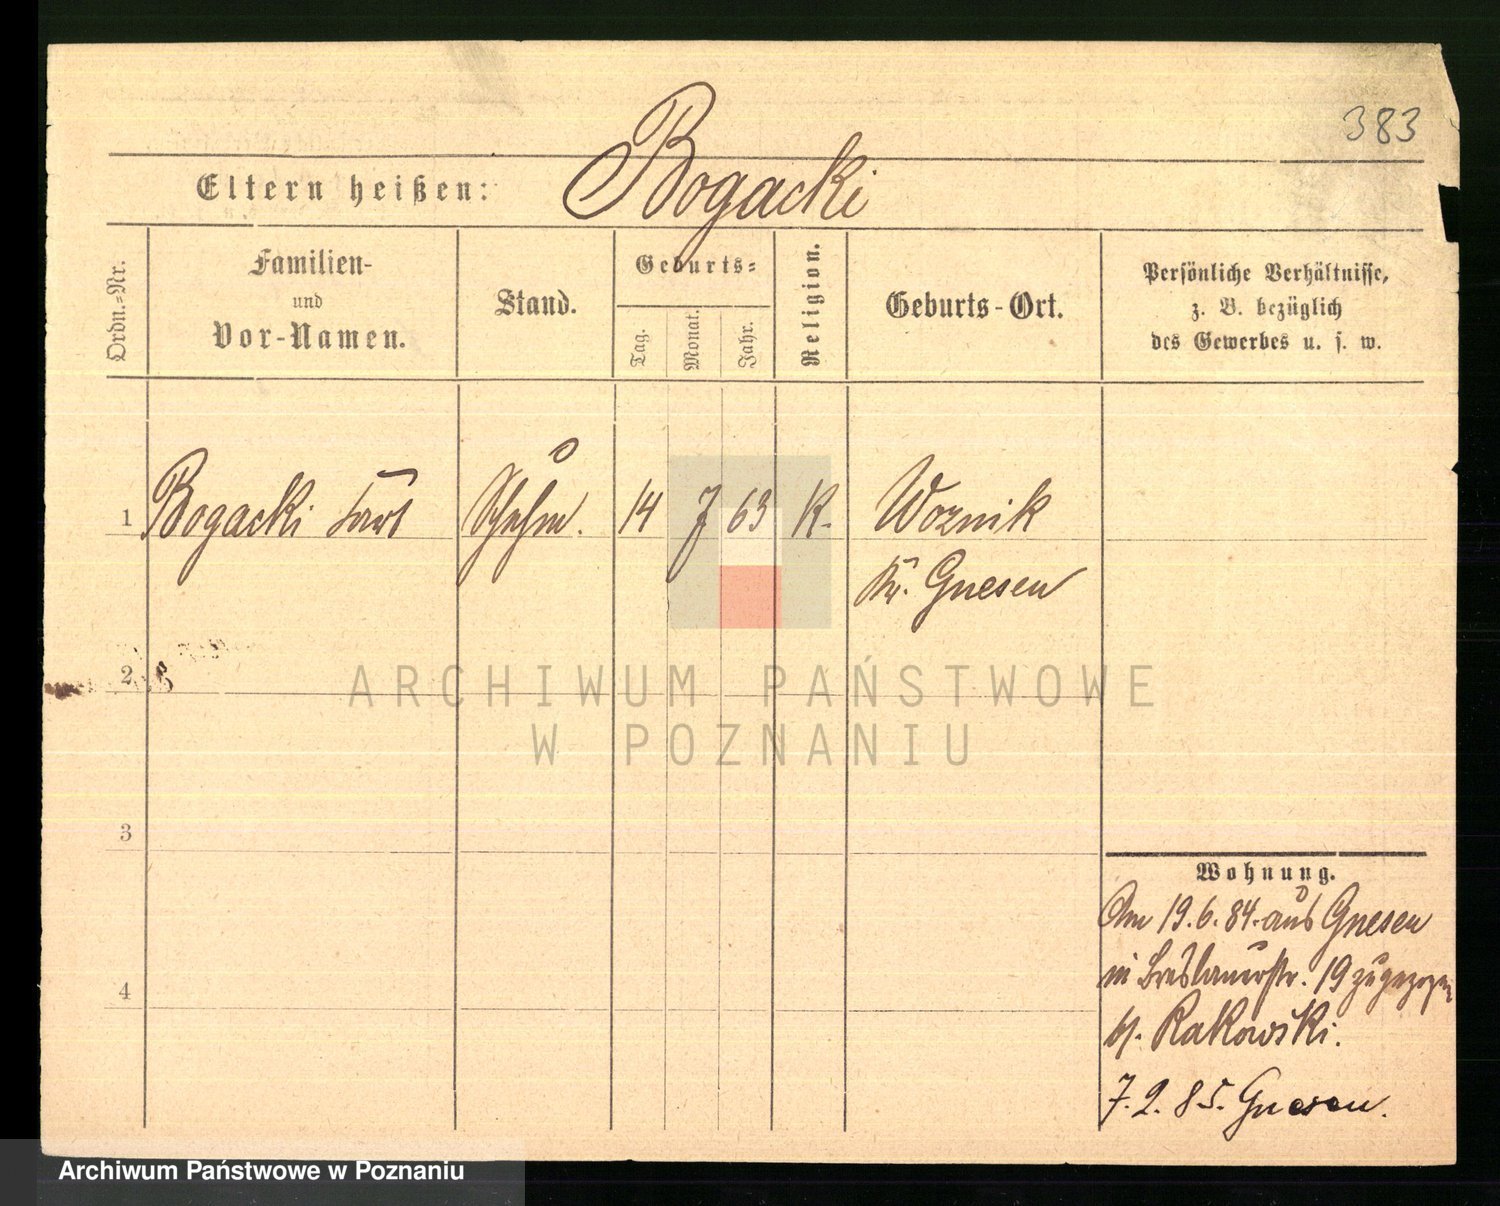 383
Eltern heißen: Bogacki
Ordn.-Nr.
Familien-
und
Vor-Namen.
Stand.
Geburts-
Tag.
Monat.
Jahr.
Religion.
Geburts-Ort.
Persönliche Verhältnisse,
z. B. bezüglich
des Gewerbes u. s. w.
1 Bogacki 14 7 63 K. Woznik
Kr. Gnesen
2
ARCHIWUM PAŃSTWOWE
W POZNANIU
3
Wohnung.
Am 19.6.84. aus Gnesen
in Breslauerstr. 19 zugezogen
b/. Rakowski.
4
7.2.85. Gnesen.
Archiwum Państwowe w Poznaniu